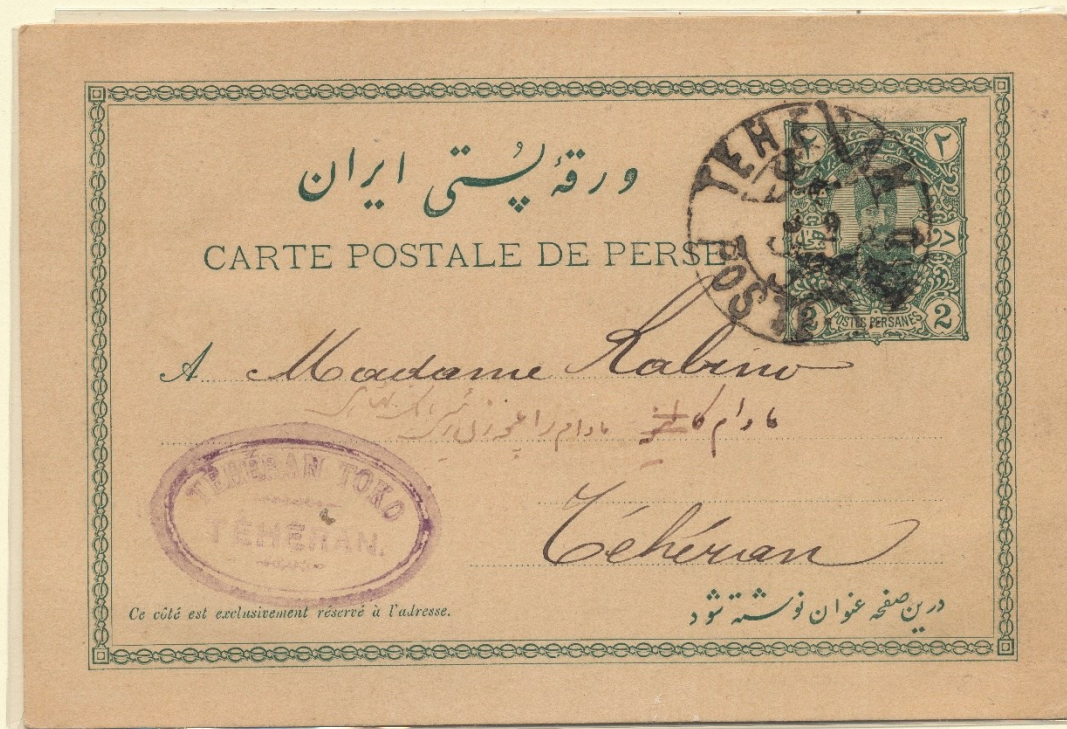 ورقهٔ پُستی ایران
CARTE POSTALE DE PERSE
TEHERAN
۲
2 POSTES PERSANES 2
A Madame Rabino
مادام
TÉHÉRAN TOKO
TÉHÉRAN.
Téhéran
Ce côté est exclusivement réservé à l'adresse.
درین صفحه عنوان نوشته شود